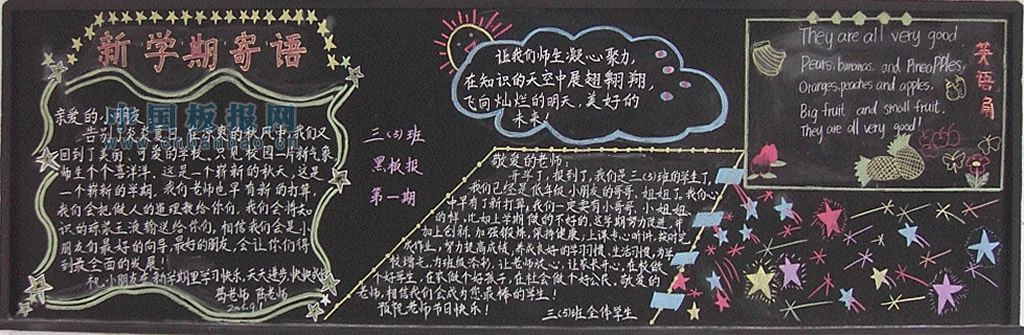 新学期寄语
亲爱的小朋友
告别了炎炎夏日,在凉爽的秋风中,我们又
回到了美丽、可爱的学校、只见校园一片新气象
师生个个喜洋洋,这是一个崭新的秋天,这是
一个崭新的学期,我们老师也早有新的打算,
我们会把做人的道理教给你们,我们会将知
识的琼浆玉液输送给你们,相信我们会是小
朋友们最好的向导,最好的朋友,会让你们得
到最全面的发展!
祝:小朋友在新学期里学习快乐,天天进步,快快成长
葛老师 陆老师
中国板报网
三(5)班
黑板报
第一期
让我们师生凝心聚力,
在知识的天空中展翅翱翔,
飞向灿烂的明天,美好的
未来!
敬爱的老师:
开学了,报到了,我们是三(5)班的学生了,
我们已经是低年级小朋友的哥哥、姐姐了,我们心
中早有了新打算,我们一定要有小哥哥、小姐姐
的样,比如上学期做的不好的,这学期努力改进,并
加上创新,加强锻炼,保持健康,上课专心听讲,按时完
成作业,努力提高成绩,养成良好的学习习惯、生活习惯,为学
校增光,为班级添彩,让老师放心,让家长开心,在校做
个好学生,在家做个好孩子,在社会做个好公民,敬爱的
老师,相信我们会成为您最棒的学生!
预祝老师节日快乐!
三(5)班全体学生
They are all very good
Pears, bananas and Pineapples,
Oranges, peaches and apples,
Big fruit and small fruit,
They are all very good!
英语角